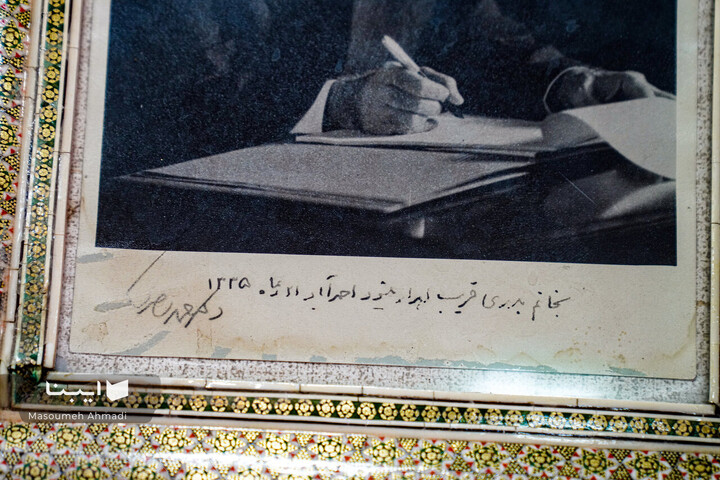 بخانم بدری قریب اهداء میشود احمدآباد دیماه ۱۳۳۵
دکتر محمد مصدق
ایبنا
Masoumeh Ahmadi